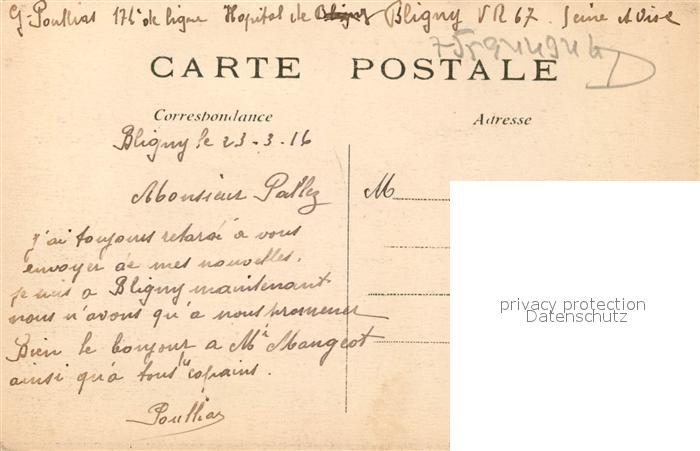 G Poullias 176e de ligne Hopital de Bligny VR 67. Seine et Oise
CARTE POSTALE
Correspondance
Adresse
Bligny le 23-3-16
Monsieur Pallez
M
j'ai toujours retardé a vous
envoyer de mes nouvelles.
je suis a Bligny maintenant
nous n'avons qu'a nous promener
Bien le bonjour a Mr Mangeot
ainsi qu'a tous "copains.
Poullias
privacy protection
Datenschutz